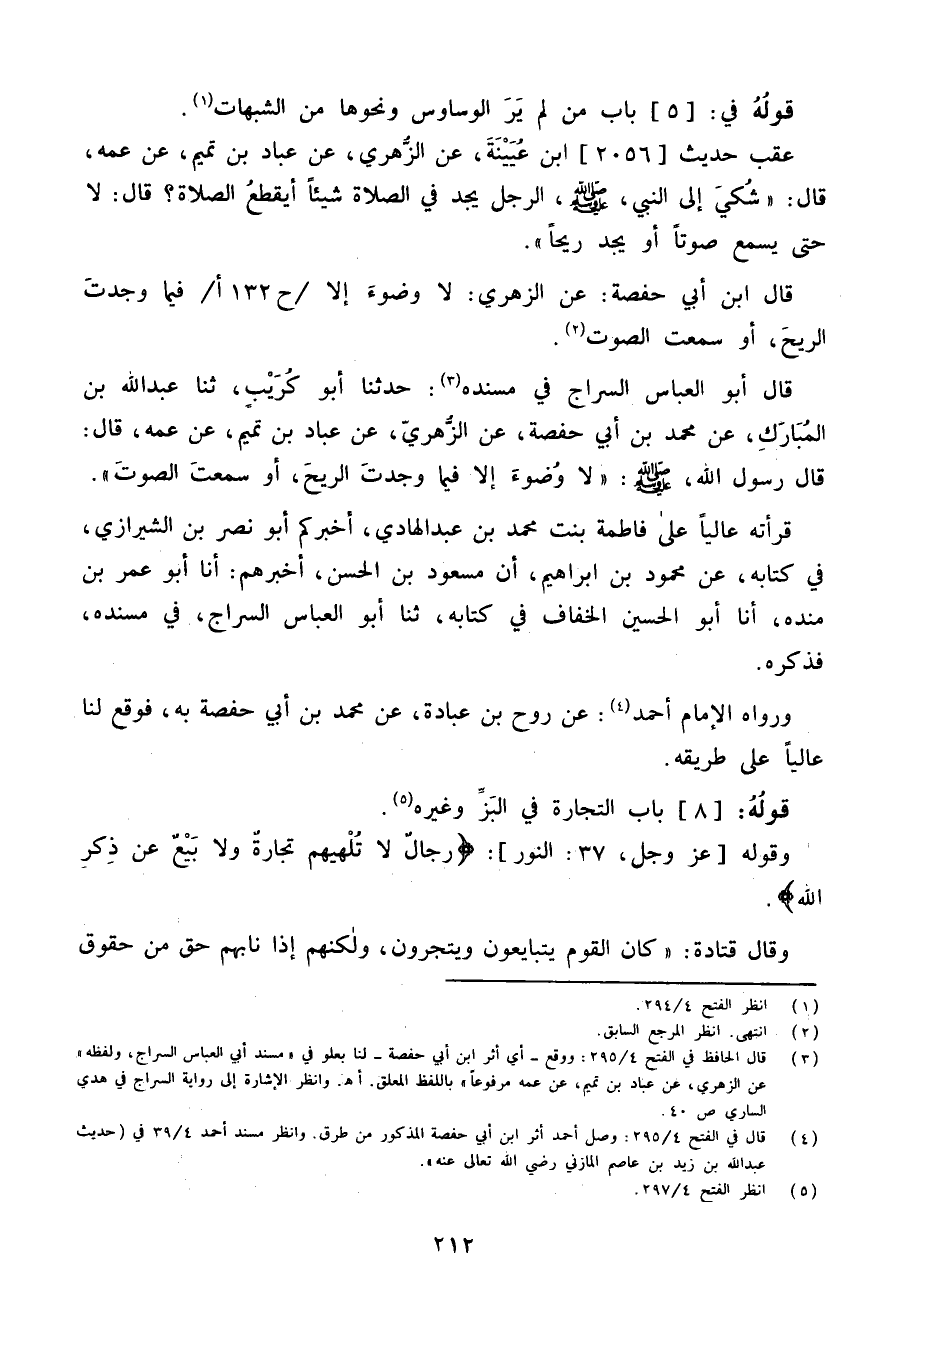 قولُهُ في: [ ٥ ] باب من لم يَرَ الوساوس ونحوها من الشبهات(١).
عقب حديث [ ٢٠٥٦ ] ابن عُيَيْنَةَ، عن الزُّهري، عن عباد بن تميم، عن عمه،
قال: « شُكيَ إلى النبي، ﷺ، الرجل يجد في الصلاة شيئاً أيقطعُ الصلاة؟ قال: لا
حتى يسمع صوتاً أو يجد ريحاً».
قال ابن أبي حفصة: عن الزهري: لا وضوءَ إلا /ح ١٣٢ أ/ فيما وجدتَ
الريحَ، أو سمعت الصوت(٢).
قال أبو العباس السراج في مسنده(٣): حدثنا أبو كُرَيْبٍ، ثنا عبدالله بن
المُبَارَكِ، عن محمد بن أبي حفصة، عن الزُّهريّ، عن عباد بن تميم، عن عمه، قال:
قال رسول الله، ﷺ: « لا وُضوءَ إلا فيما وجدتَ الريحَ، أو سمعتَ الصوتَ».
قرأته عالياً علىٰ فاطمة بنت محمد بن عبدالهادي، أخبركم أبو نصر بن الشيرازي،
في كتابه، عن محمود بن ابراهيم، أن مسعود بن الحسن، أخبرهم: أنا أبو عمر بن
منده، أنا أبو الحسين الخفاف في كتابه، ثنا أبو العباس السراج، في مسنده،
فذكره.
ورواه الإمام أحمد(٤): عن روح بن عبادة، عن محمد بن أبي حفصة به، فوقع لنا
عالياً على طريقه.
قولُهُ: [ ٨ ] باب التجارة في البَزِّ وغيره(٥).
وقوله [ عز وجل، ٣٧: النور ]: ﴿رجالٌ لا تُلْهيهم تجارةٌ ولا بَيْعٌ عن ذِكرِ
الله﴾.
وقال قتادة: « كان القوم يتبايعون ويتجرون، ولٰكنهم إذا نابهم حق من حقوق
(١) انظر الفتح ٢٩٤/٤.
(٢) انتهى. انظر المرجع السابق.
(٣) قال الحافظ في الفتح ٢٩٥/٤: ووقع - أي أثر ابن أبي حفصة - لنا بعلو في « مسند أبي العباس السراج، ولفظه»
عن الزهري، عن عباد بن تميم، عن عمه مرفوعاً» باللفظ المعلق. أ هـ. وانظر الإشارة إلى رواية السراج في هدي
الساري ص ٤٠.
(٤) قال في الفتح ٢٩٥/٤: وصل أحمد أثر ابن أبي حفصة المذكور من طرق. وانظر مسند أحمد ٣٩/٤ في (حديث
عبدالله بن زيد بن عاصم المازني رضي الله تعالى عنه».
(٥) انظر الفتح ٢٩٧/٤.
٢١٢